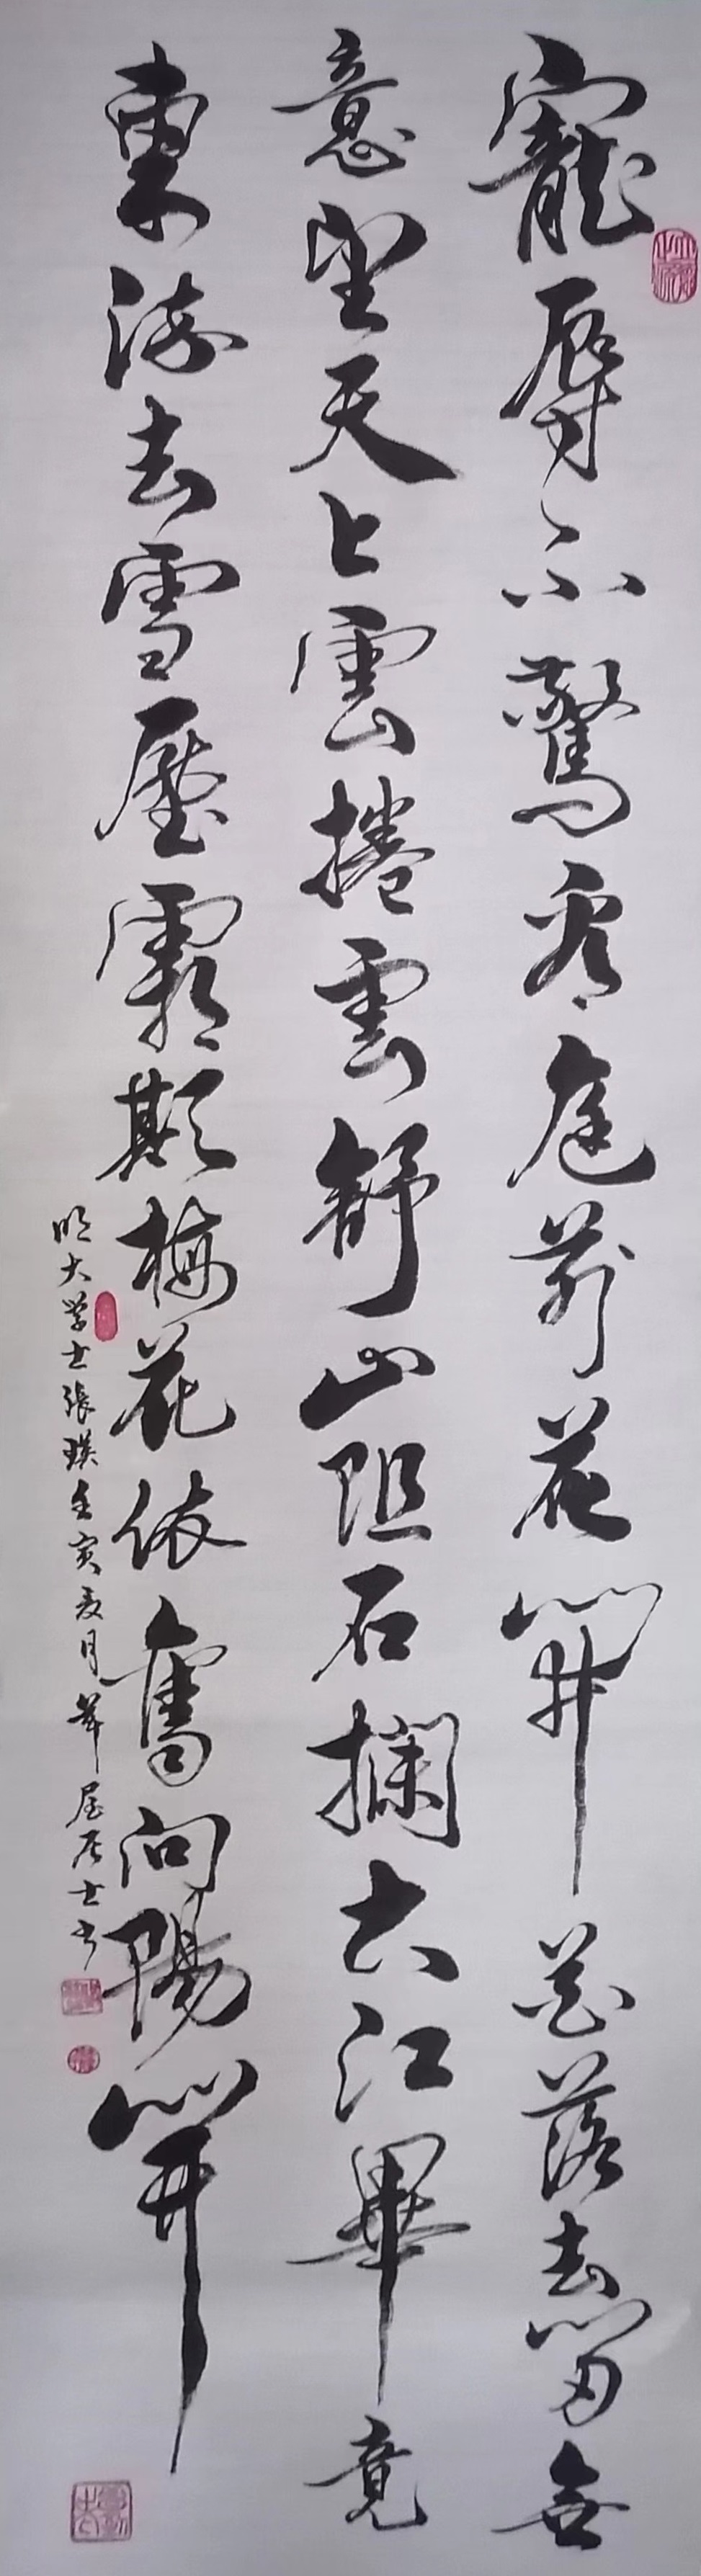 寵辱不驚看庭前花開花落去留無
意望天上雲捲雲舒山阻石攔大江畢竟
東流去雪壓霜欺梅花依舊向陽開
明大学士張瑛壬寅夏月 居士书